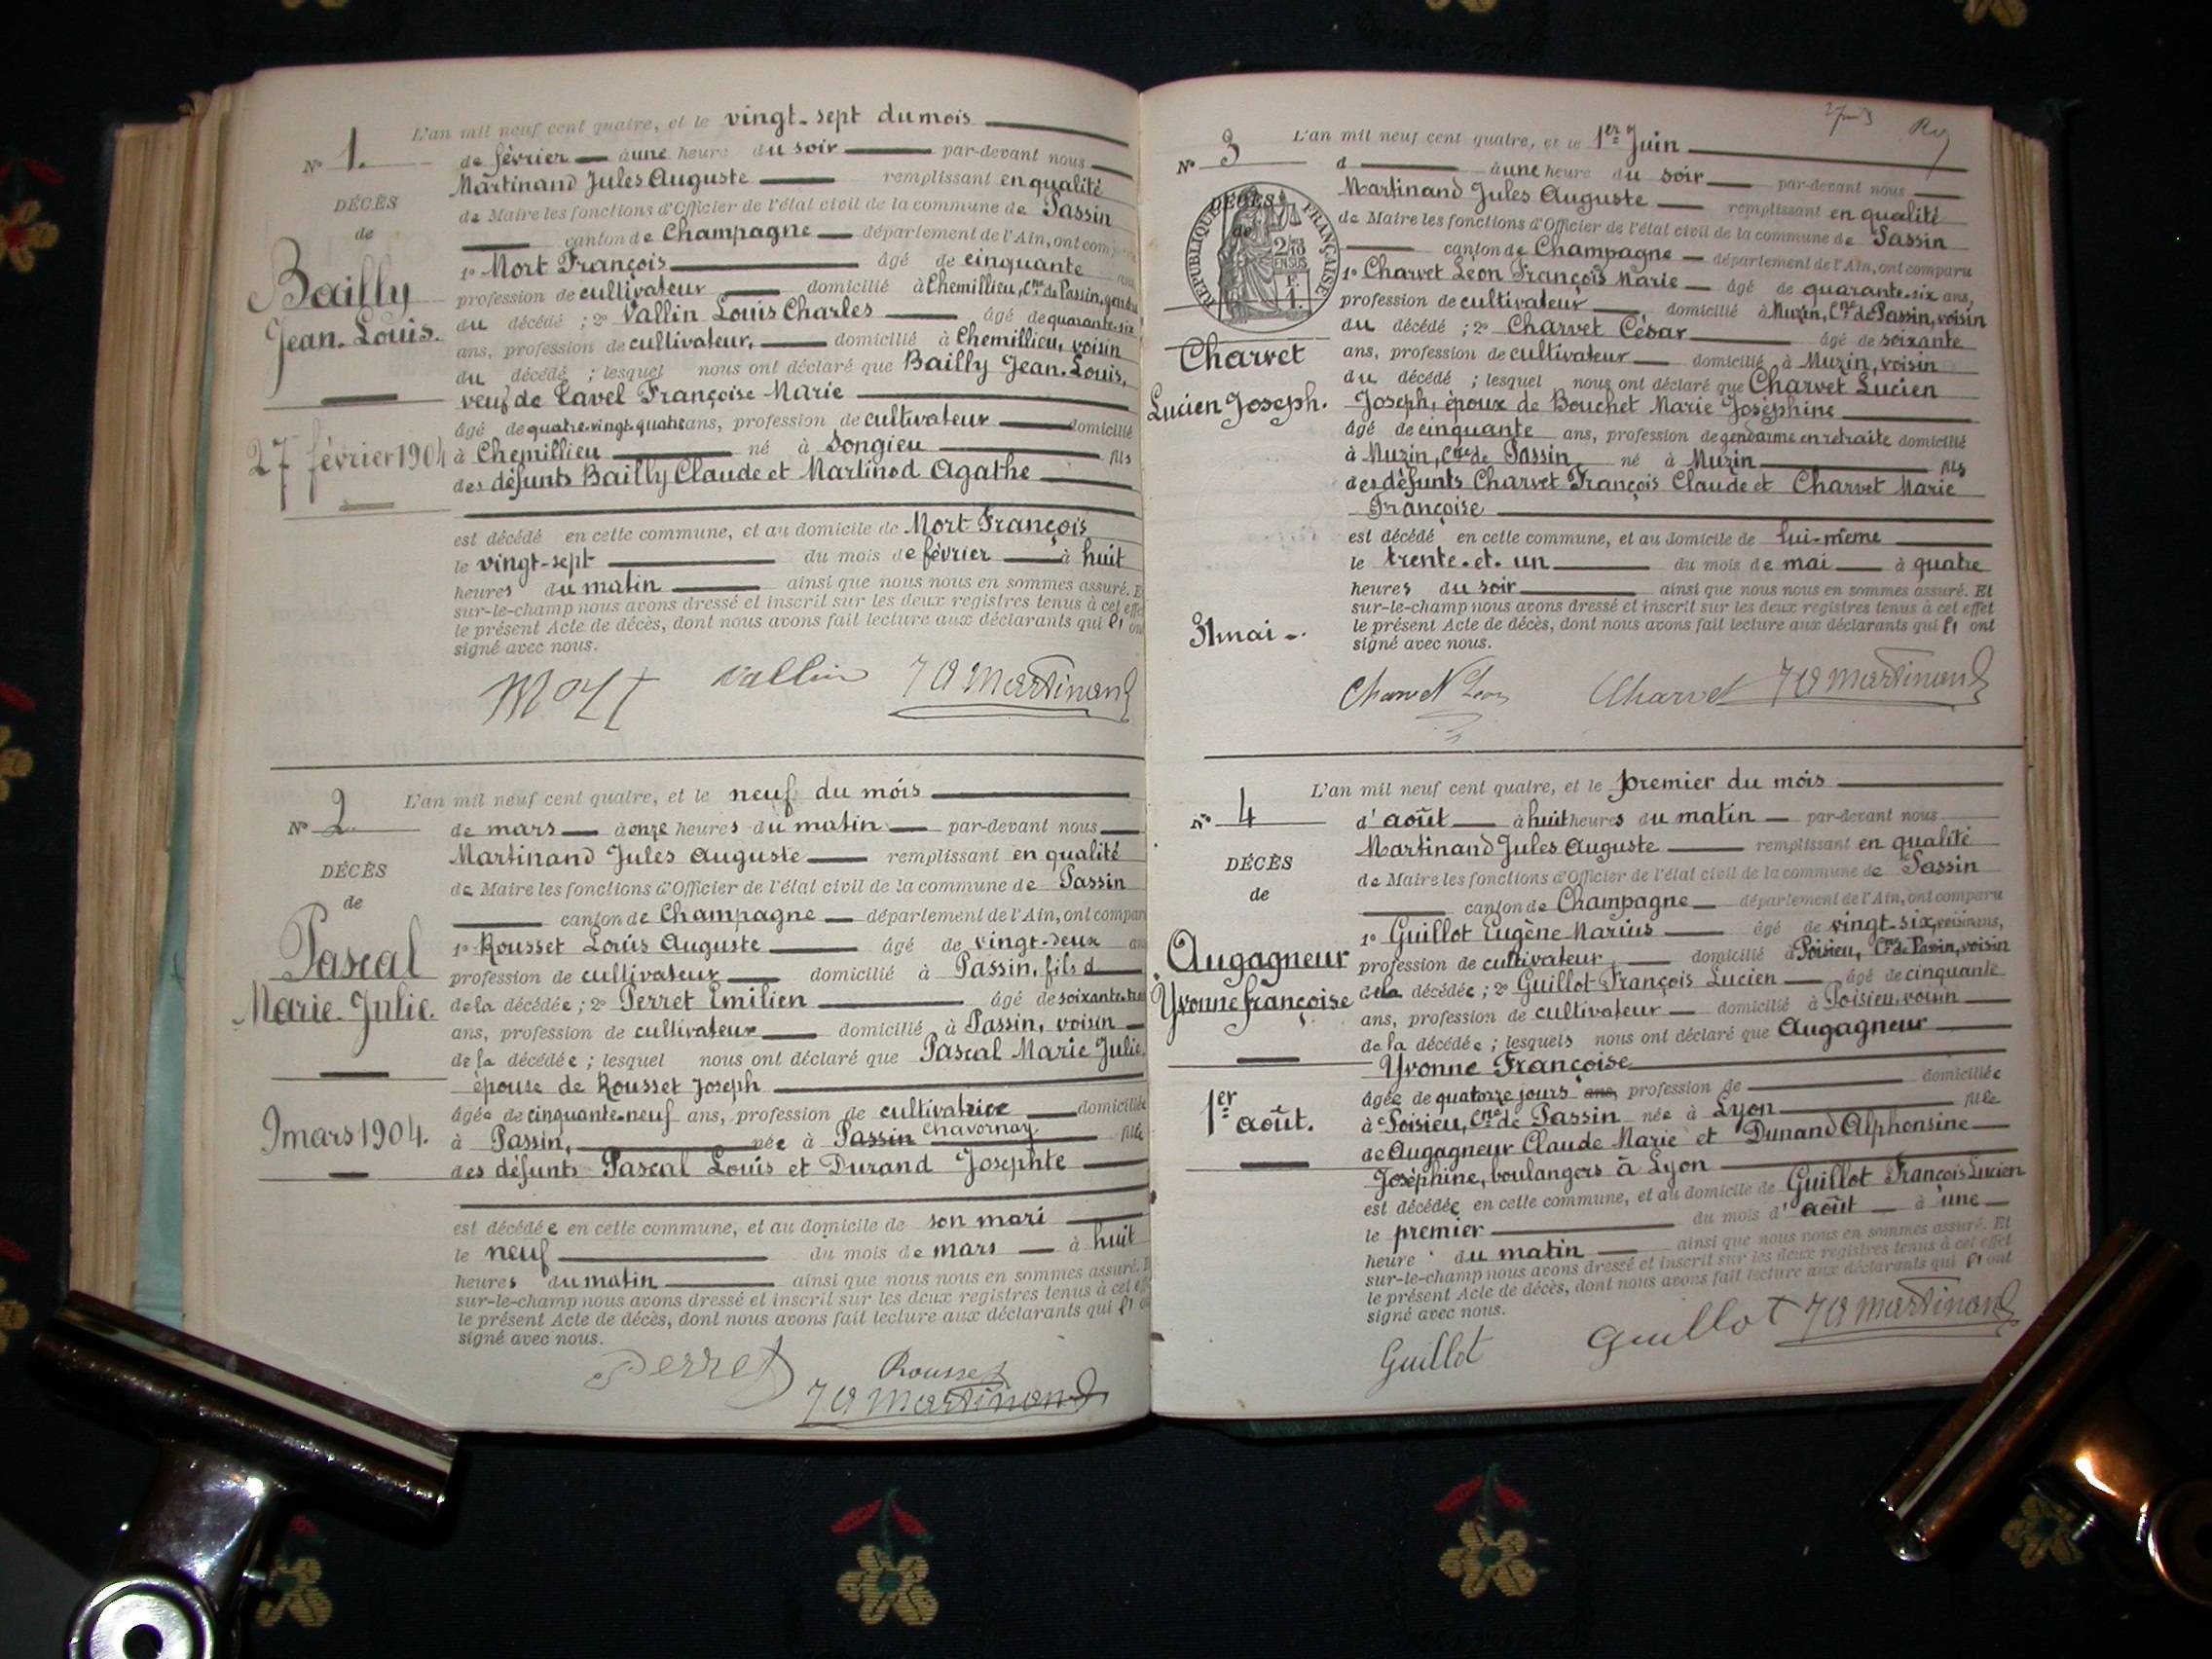 L'an mil neuf cent quatre, et le vingt-sept du mois
N° 1.
de février à une heure du soir par-devant nous
Martinand Jules Auguste remplissant en qualité
DÉCÈS
de Maire les fonctions d'Officier de l'état civil de la commune de Passin
de
canton de Champagne département de l'Ain, ont com
1° Mort François âgé de cinquante
Bailly
profession de cultivateur domicilié à Chemillieu, Cne de Passin, gendre
Jean-Louis.
du décédé ; 2° Vallin Louis Charles âgé de quarante-six
ans, profession de cultivateur, domicilié à Chemillieu, voisin
du décédé ; lesquel nous ont déclaré que Bailly Jean-Louis,
veuf de Lavel Françoise Marie
âgé de quatre-vingt-quatre ans, profession de cultivateur domicilié
27 février 1904
à Chemillieu né à Songieu fils
des défunts Bailly Claude et Martinod Agathe
est décédé en cette commune, et au domicile de Mort François
le vingt-sept du mois de février à huit
heures du matin ainsi que nous nous en sommes assuré. E
sur-le-champ nous avons dressé et inscrit sur les deux registres tenus à cet effe
le présent Acte de décès, dont nous avons fait lecture aux déclarants qui ont
signé avec nous.
Mort Vallin JA Martinand
L'an mil neuf cent quatre, et le neuf du mois
N° 2
de mars à onze heures du matin par-devant nous
Martinand Jules Auguste remplissant en qualité
DÉCÈS
de Maire les fonctions d'Officier de l'état civil de la commune de Passin
de
canton de Champagne département de l'Ain, ont compar
1° Rousset Louis Auguste âgé de vingt-deux an
Pascal
profession de cultivateur domicilié à Passin, fils d
Marie-Julie.
de la décédée ; 2° Perret Emilien âgé de
ans, profession de cultivateur domicilié à Passin, voisin
de la décédée ; lesquel nous ont déclaré que Pascal Marie Julie
épouse de Rousset Joseph
âgée de cinquante-neuf ans, profession de cultivatrice domiciliée
9 mars 1904.
à Passin, née à Passin Chavornay fille
des défunts Pascal Louis et Durand Josephte
est décédée en cette commune, et au domicile de son mari
le neuf du mois de mars à huit
heures du matin ainsi que nous nous en sommes assuré. E
sur-le-champ nous avons dressé et inscrit sur les deux registres tenus à cet eff
le présent Acte de décès, dont nous avons fait lecture aux déclarants qui
signé avec nous.
Perret Rousset
JA Martinand
L'an mil neuf cent quatre, et le 1er Juin
N° 3
d à une heure du soir par-devant nous
Martinand Jules Auguste remplissant en qualité
DÉCÈS
de
RÉPUBLIQUE FRANÇAISE
de Maire les fonctions d'Officier de l'état civil de la commune de Passin
canton de Champagne département de l'Ain, ont comparu
1° Charvet Léon François Marie âgé de quarante-six ans,
profession de cultivateur domicilié à Muzin, Cne de Passin, voisin
du décédé ; 2° Charvet César âgé de soixante
Charvet
ans, profession de cultivateur domicilié à Muzin, voisin
du décédé ; lesquel nous ont déclaré que Charvet Lucien
Lucien Joseph.
Joseph, époux de Bouchet Marie Joséphine
âgé de cinquante ans, profession de gendarme en retraite domicilié
à Muzin, Cne de Passin né à Muzin fils
des défunts Charvet François Claude et Charvet Marie
Françoise
est décédé en cette commune, et au domicile de lui-même
le trente-et-un du mois de mai à quatre
heures du soir ainsi que nous nous en sommes assuré. Et
sur-le-champ nous avons dressé et inscrit sur les deux registres tenus à cet effet
31 mai
le présent Acte de décès, dont nous avons fait lecture aux déclarants qui ont
signé avec nous.
Charvet Léon Charvet JA Martinand
L'an mil neuf cent quatre, et le premier du mois
N° 4
d'août à huit heures du matin par-devant nous
Martinand Jules Auguste remplissant en qualité
DÉCÈS
de Maire les fonctions d'Officier de l'état civil de la commune de Passin
de
canton de Champagne département de l'Ain, ont comparu
1° Guillot Eugène Marius âgé de vingt-six ans,
Augagneur
profession de cultivateur domicilié à Poisieu, Cne de Passin, voisin
Yvonne françoise
de la décédée ; 2° Guillot François Lucien âgé de cinquante
ans, profession de cultivateur domicilié à Poisieu, voisin
de la décédée ; lesquels nous ont déclaré que Augagneur
Yvonne Françoise
âgée de quatorze jours ans, profession de domiciliée
1er août.
à Poisieu, Cne de Passin née à Lyon fille
de Augagneur Claude Marie et Dunand Alphonsine
Joséphine, boulangers à Lyon
est décédée en cette commune, et au domicile de Guillot François Lucien
le premier du mois d'août à une
heure du matin ainsi que nous nous en sommes assuré. Et
sur-le-champ nous avons dressé et inscrit sur les deux registres tenus à cet effet
le présent Acte de décès, dont nous avons fait lecture aux déclarants qui ont
signé avec nous.
Guillot Guillot JA Martinand